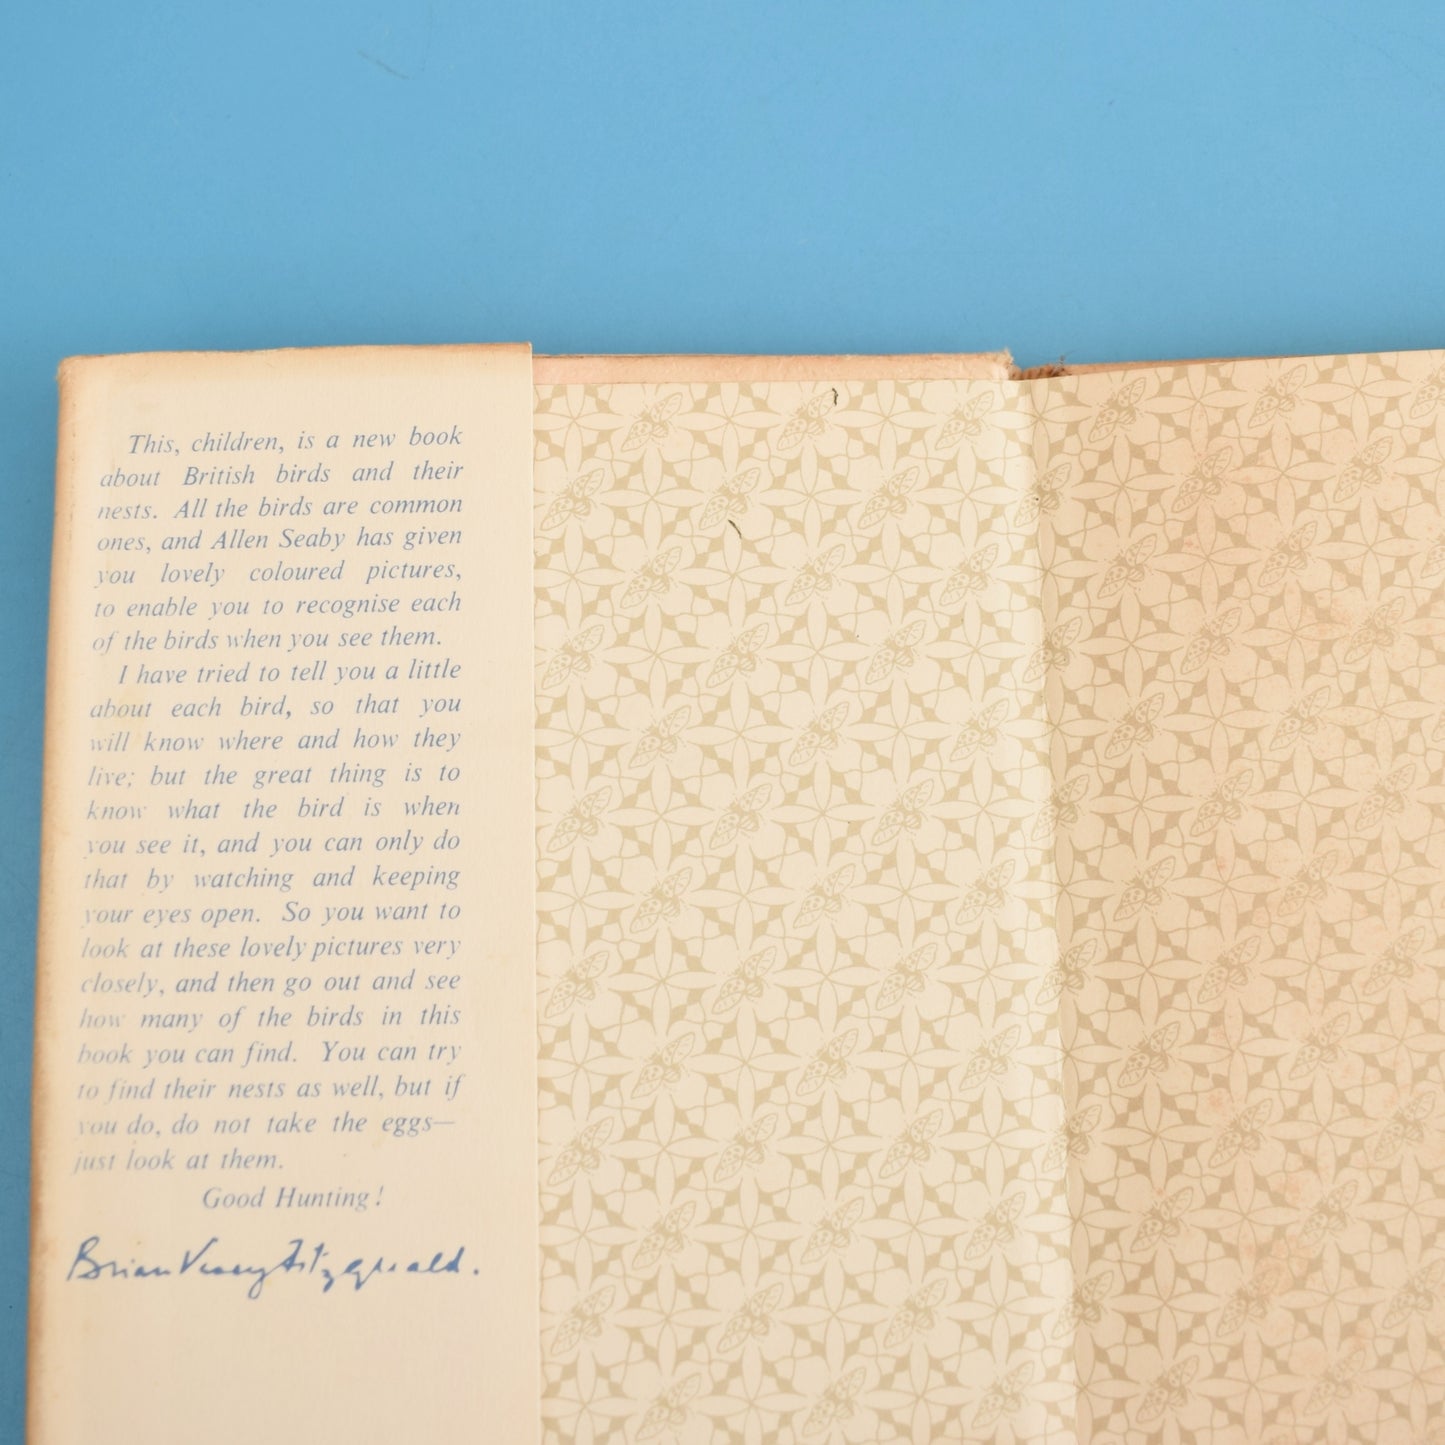 This, children, is a new book
about British birds and their
nests. All the birds are common
ones, and Allen Seaby has given
you lovely coloured pictures,
to enable you to recognise each
of the birds when you see them.
I have tried to tell you a little
about each bird, so that you
will know where and how they
live; but the great thing is to
know what the bird is when
you see it, and you can only do
that by watching and keeping
your eyes open. So you want to
look at these lovely pictures very
closely, and then go out and see
how many of the birds in this
book you can find. You can try
to find their nests as well, but if
you do, do not take the eggs—
just look at them.
Good Hunting!
Brian Vesey Fitzgerald.